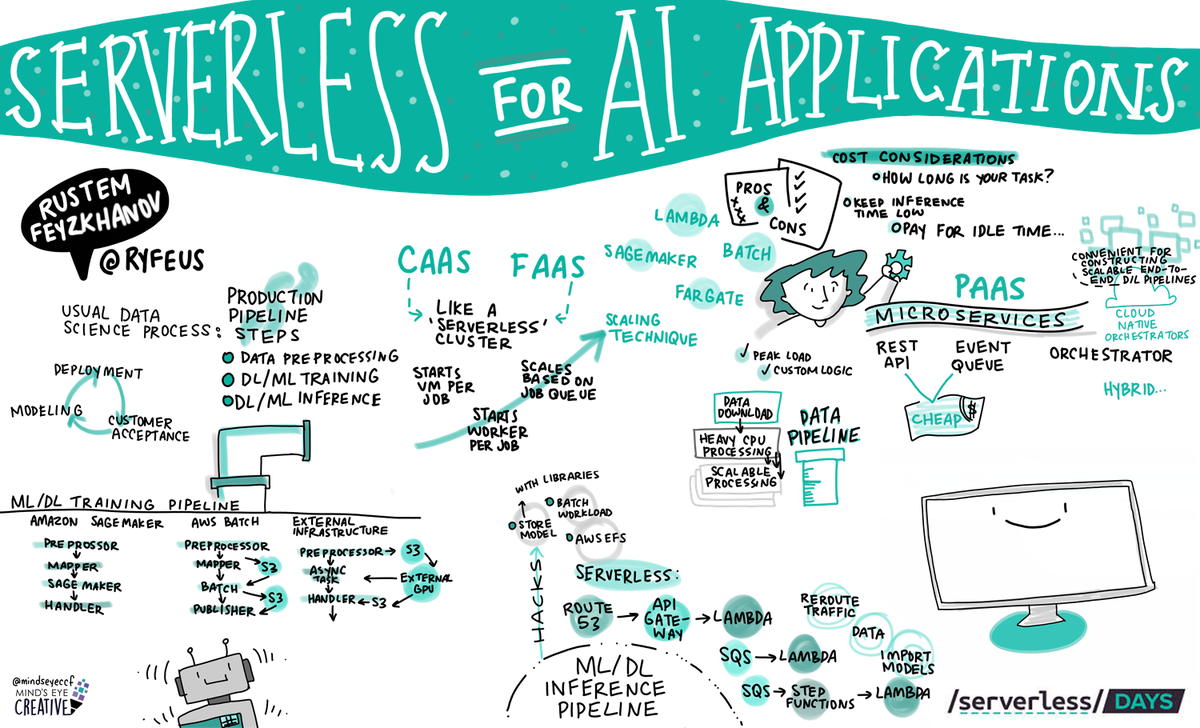 SERVERLESS FOR AI APPLICATIONS
RUSTEM
FEYZKHANOV
@RYFEUS
USUAL DATA
SCIENCE PROCESS:
DEPLOYMENT
MODELING
CUSTOMER
ACCEPTANCE
PRODUCTION
PIPELINE
STEPS
DATA PREPROCESSING
DL/ML TRAINING
DL/ML INFERENCE
CAAS
FAAS
LIKE A
'SERVERLESS'
CLUSTER
STARTS
VM PER
JOB
STARTS
WORKER
PER JOB
SCALES
BASED ON
JOB QUEUE
SCALING
TECHNIQUE
LAMBDA
SAGEMAKER
BATCH
FARGATE
PROS
&
CONS
COST CONSIDERATIONS
HOW LONG IS YOUR TASK?
KEEP INFERENCE
TIME LOW
PAY FOR IDLE TIME...
PEAK LOAD
CUSTOM LOGIC
PAAS
MICROSERVICES
REST
API
EVENT
QUEUE
CHEAP
$
ORCHESTRATOR
HYBRID...
CONVENIENT FOR
CONSTRUCTING
SCALABLE END-TO-
END D/L PIPELINES
CLOUD
NATIVE
ORCHESTRATORS
DATA
DOWNLOAD
HEAVY CPU
PROCESSING
SCALABLE
PROCESSING
DATA
PIPELINE
ML/DL TRAINING PIPELINE
AMAZON SAGEMAKER
PREPROSSOR
MAPPER
SAGE MAKER
HANDLER
AWS BATCH
PREPROCESSOR
MAPPER
S3
BATCH
S3
PUBLISHER
EXTERNAL
INFRASTRUCTURE
PREPROCESSOR
S3
ASYNC
TASK
EXTERNAL
GPU
HANDLER
S3
HACKS
STORE
MODEL
WITH LIBRARIES
BATCH
WORKLOAD
AWS EFS
SERVERLESS:
ROUTE
53
API
GATE-
WAY
LAMBDA
SQS
LAMBDA
SQS
STEP
FUNCTIONS
LAMBDA
REROUTE
TRAFFIC
DATA
IMPORT
MODELS
ML/DL
INFERENCE
PIPELINE
@mindseyeccf
MIND'S EYE
CREATIVE
/serverless/DAYS